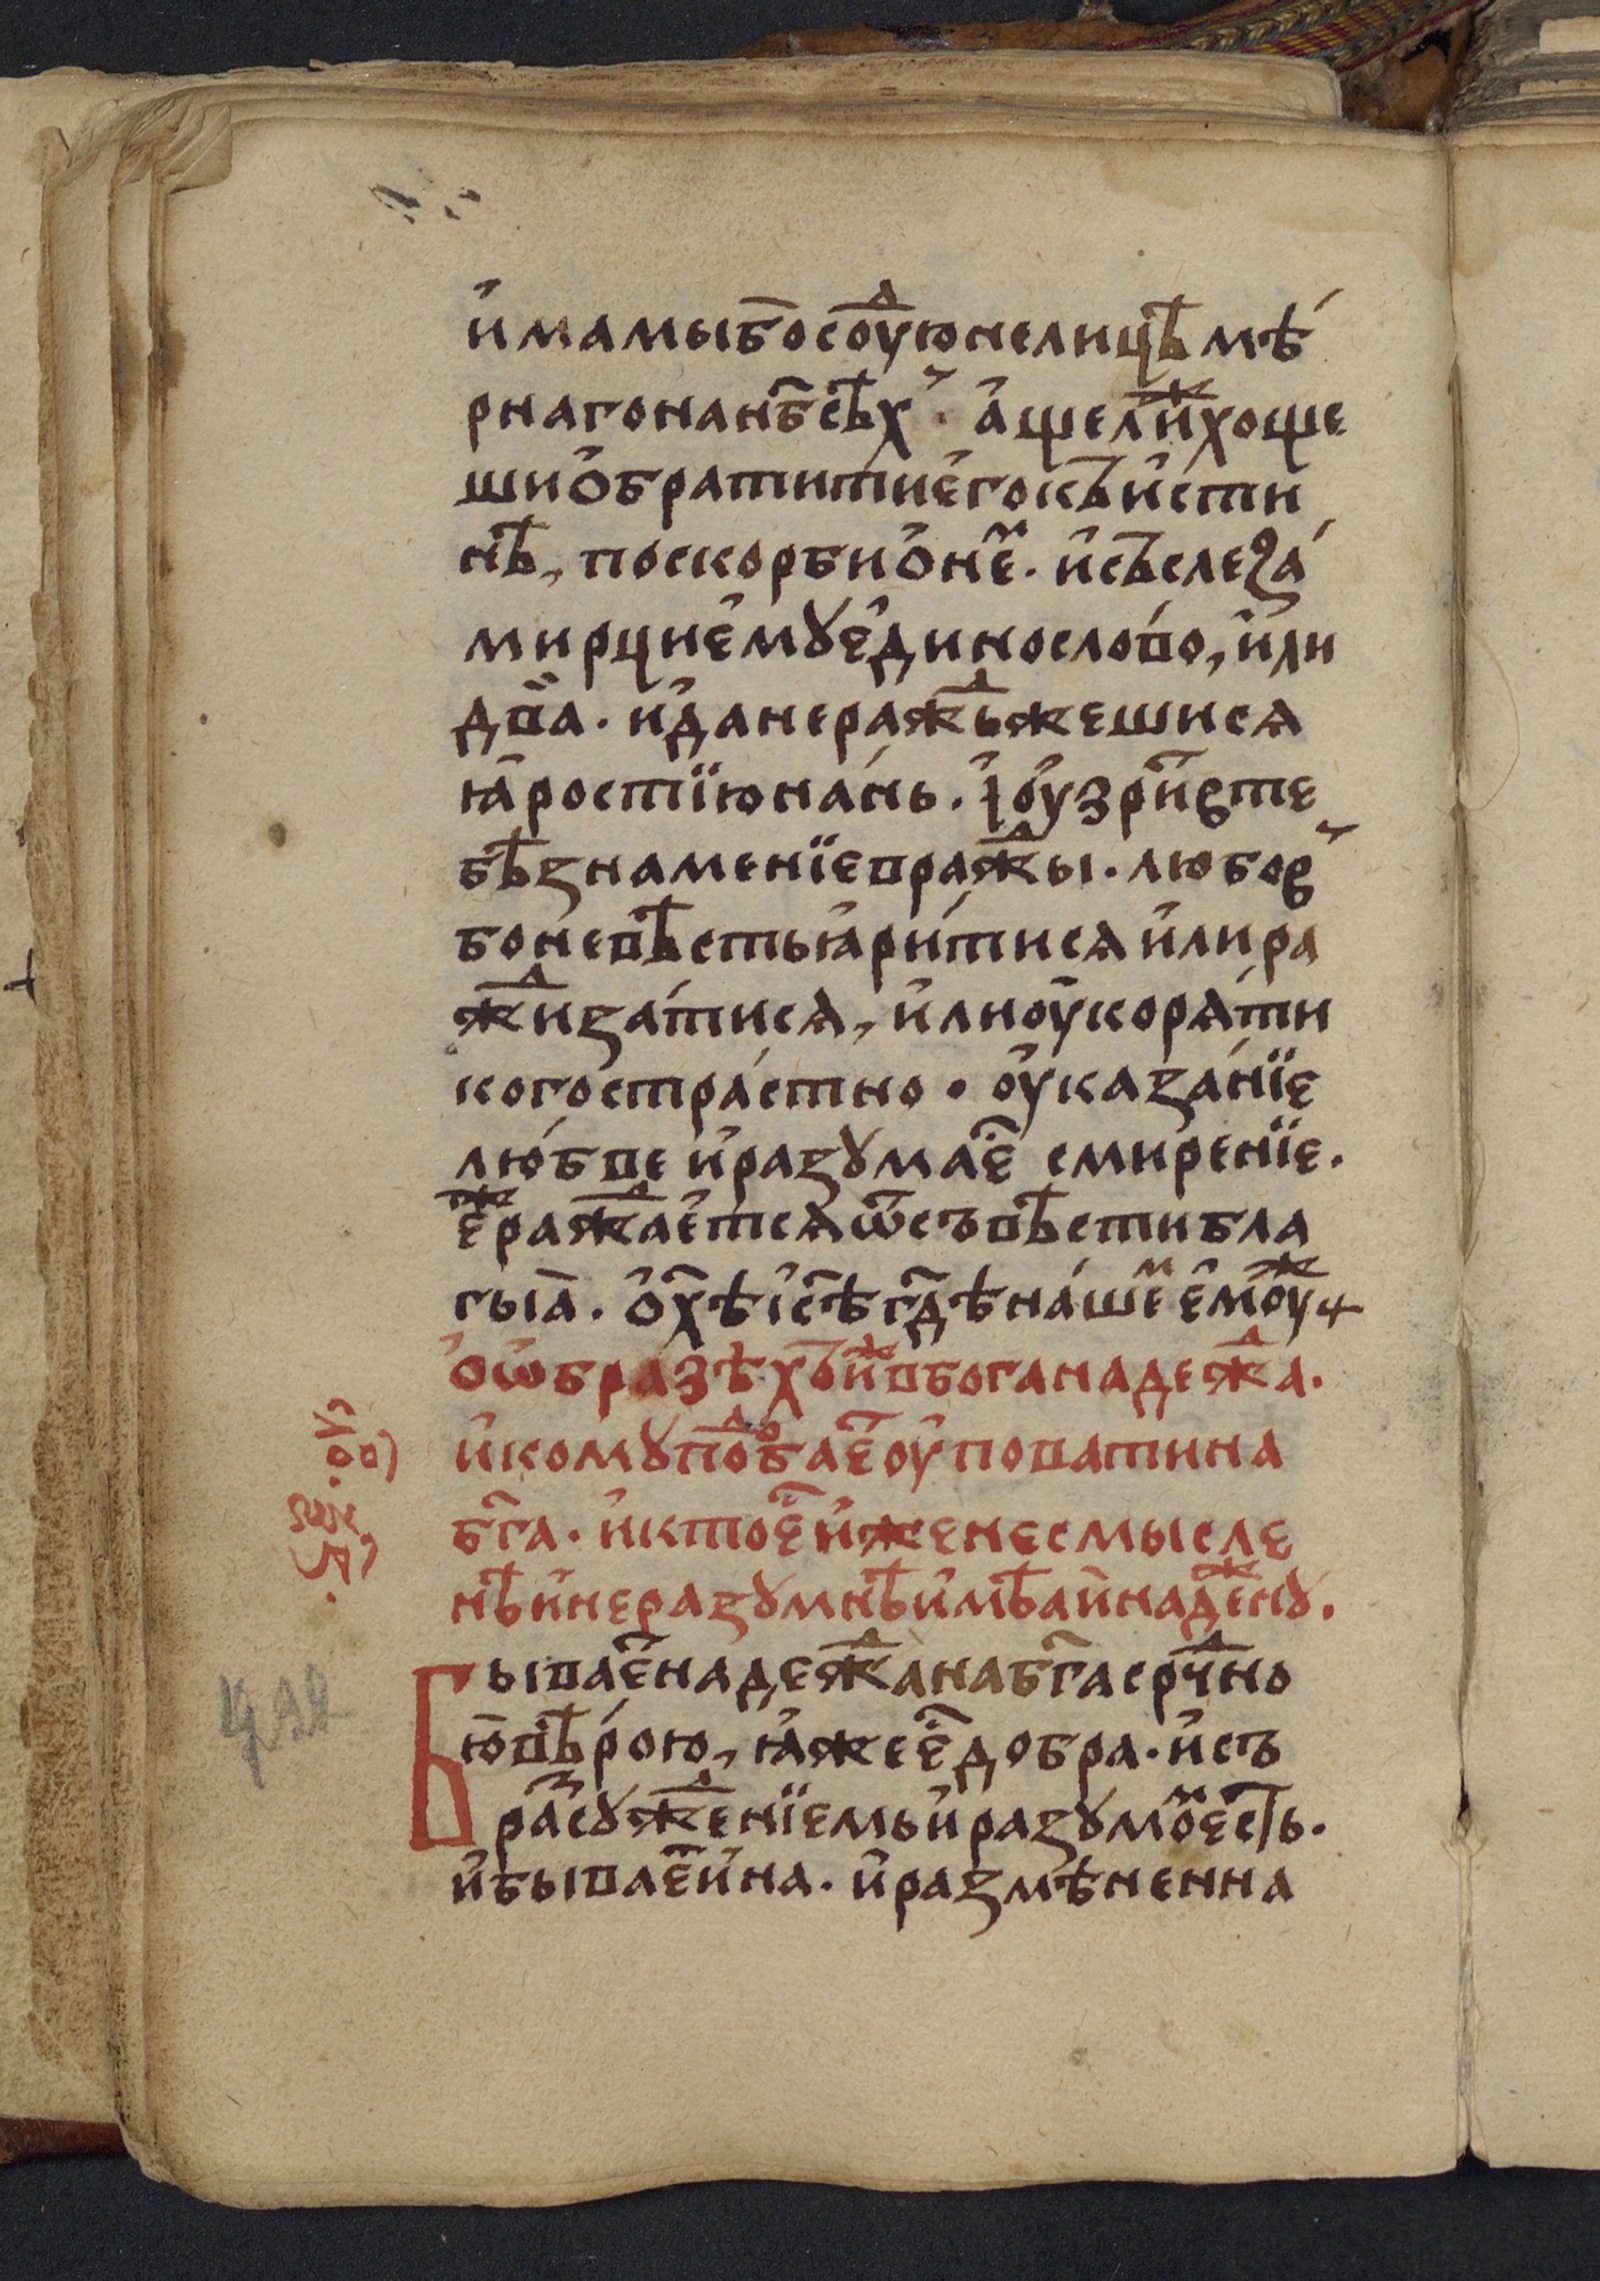 и҆мамы бо сꙋⷣю нелицѣмѣ́
рнаго на нб҃сѣхъ. а҆ще лиⷤ хоще
ши ѻ҆братити е҆го къ и҆сти
нѣ, поскорби ѻ҆ неⷨ. и҆ съ слеза́
ми рци е҆мꙋ є҆дино сло́во, и҆ли
два̀. и҆ да не раⷤжьжешисѧ
ꙗ҆ростїю нань. і҆ оу҆зриⷮ в те
бѣ знаменїе враⷤды. любовъ
бо не вѣсть ꙗ҆ри́тисѧ и҆ли ра
ⷤдиза́тисѧ, и҆ли ᲂу҆корѧ́ти
кого страстно. ᲂу҆каза́нїе
любве и҆ разꙋма еⷭ҇ смирéнїе.
еⷤ раⷤдае҆тсѧ ѿ съвѣсти бла
гыа. ѻ҆ хⷭ҇ѣ і҆с҃ѣ гдⷭ҇ѣ на́шеⷨ е҆моуⷤ +
ѻ҆ ѡ҆бразѣхъ иⷤ в бога надеⷤда.
и҆ комꙋ поⷣбаеⷮ оу҆повати на
бг҃а. и҆ кто еⷭ҇ и҆же несмысле
нѣ и҆ неразꙋмнѣ и҆мѣаи надеⷤнꙋ.
Бываеⷮ надеⷤда на бг҃а срⷣчно
ю вѣ́рою, ꙗ҆же еⷭ҇ добра. и҆ съ
раꙁсꙋⷤденїемь и҆ разꙋмоⷨ есть.
и҆ быва́еⷮ и҆на. и҆ размѣненна